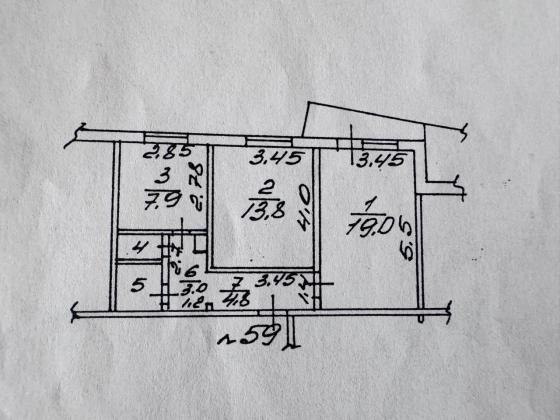 2.85
3.45
3.45
3
7.9
2.78
2
13.8
4.0
1
19.0
5.5
4
2.7
5
6
3.0
1.2
7
4.8
3.45
1.4
59